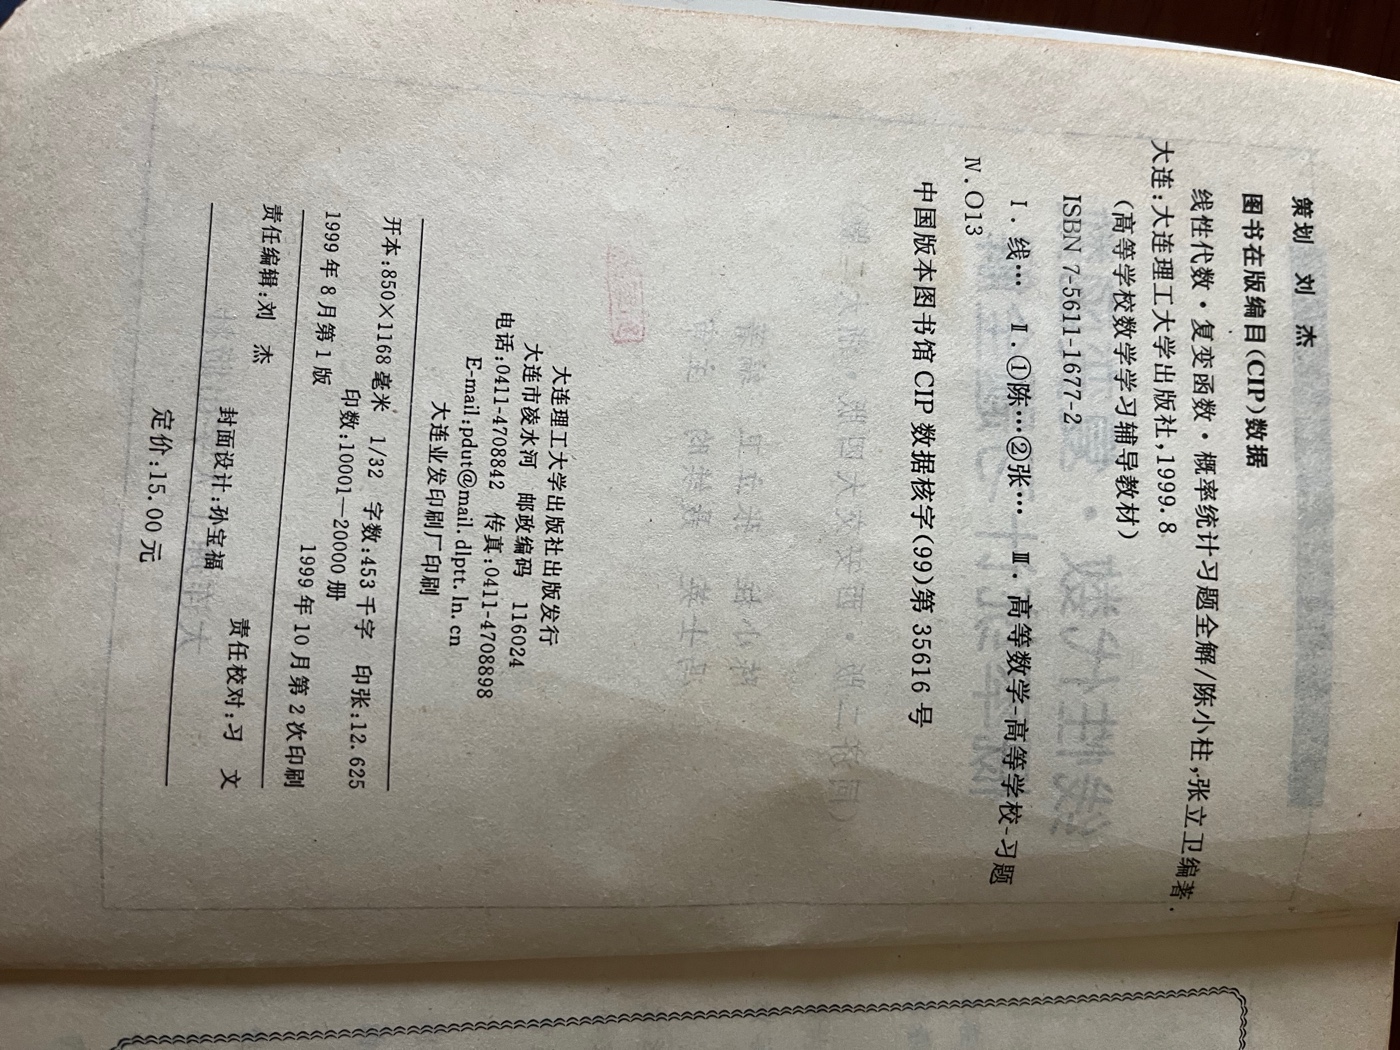 策划 刘 杰
图书在版编目(CIP)数据
线性代数·复变函数·概率统计习题全解/陈小柱,张立卫编著.
大连:大连理工大学出版社,1999.8
(高等学校数学学习辅导教材)
ISBN 7-5611-1677-2
Ⅰ.线… Ⅱ.①陈…②张… Ⅲ.高等数学-高等学校-习题
Ⅳ.O13
中国版本图书馆CIP数据核字(99)第35616号
大连理工大学出版社出版发行
大连市凌水河 邮政编码 116024
电话:0411-4708842 传真:0411-4708898
E-mail:pdut@mail.dlptt.ln.cn
大连业发印刷厂印刷
开本:850×1168毫米 1/32 字数:453千字 印张:12.625
印数:10001—20000册
1999年8月第1版 1999年10月第2次印刷
责任编辑:刘 杰 责任校对:习 文
封面设计:孙宝福
定价:15.00元